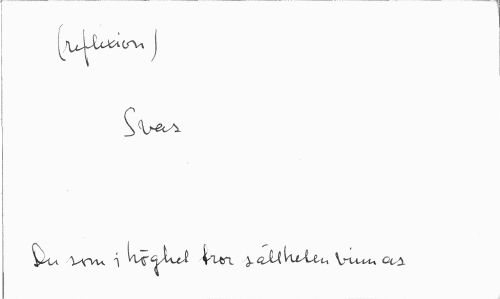 (reflexion)
Svas
Du som i höghet tror sällheten vinnas